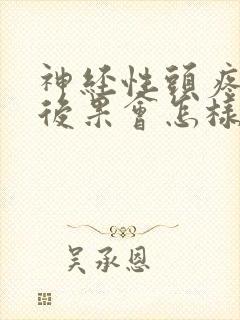 神经性頭疼
後果會怎樣
吴承恩